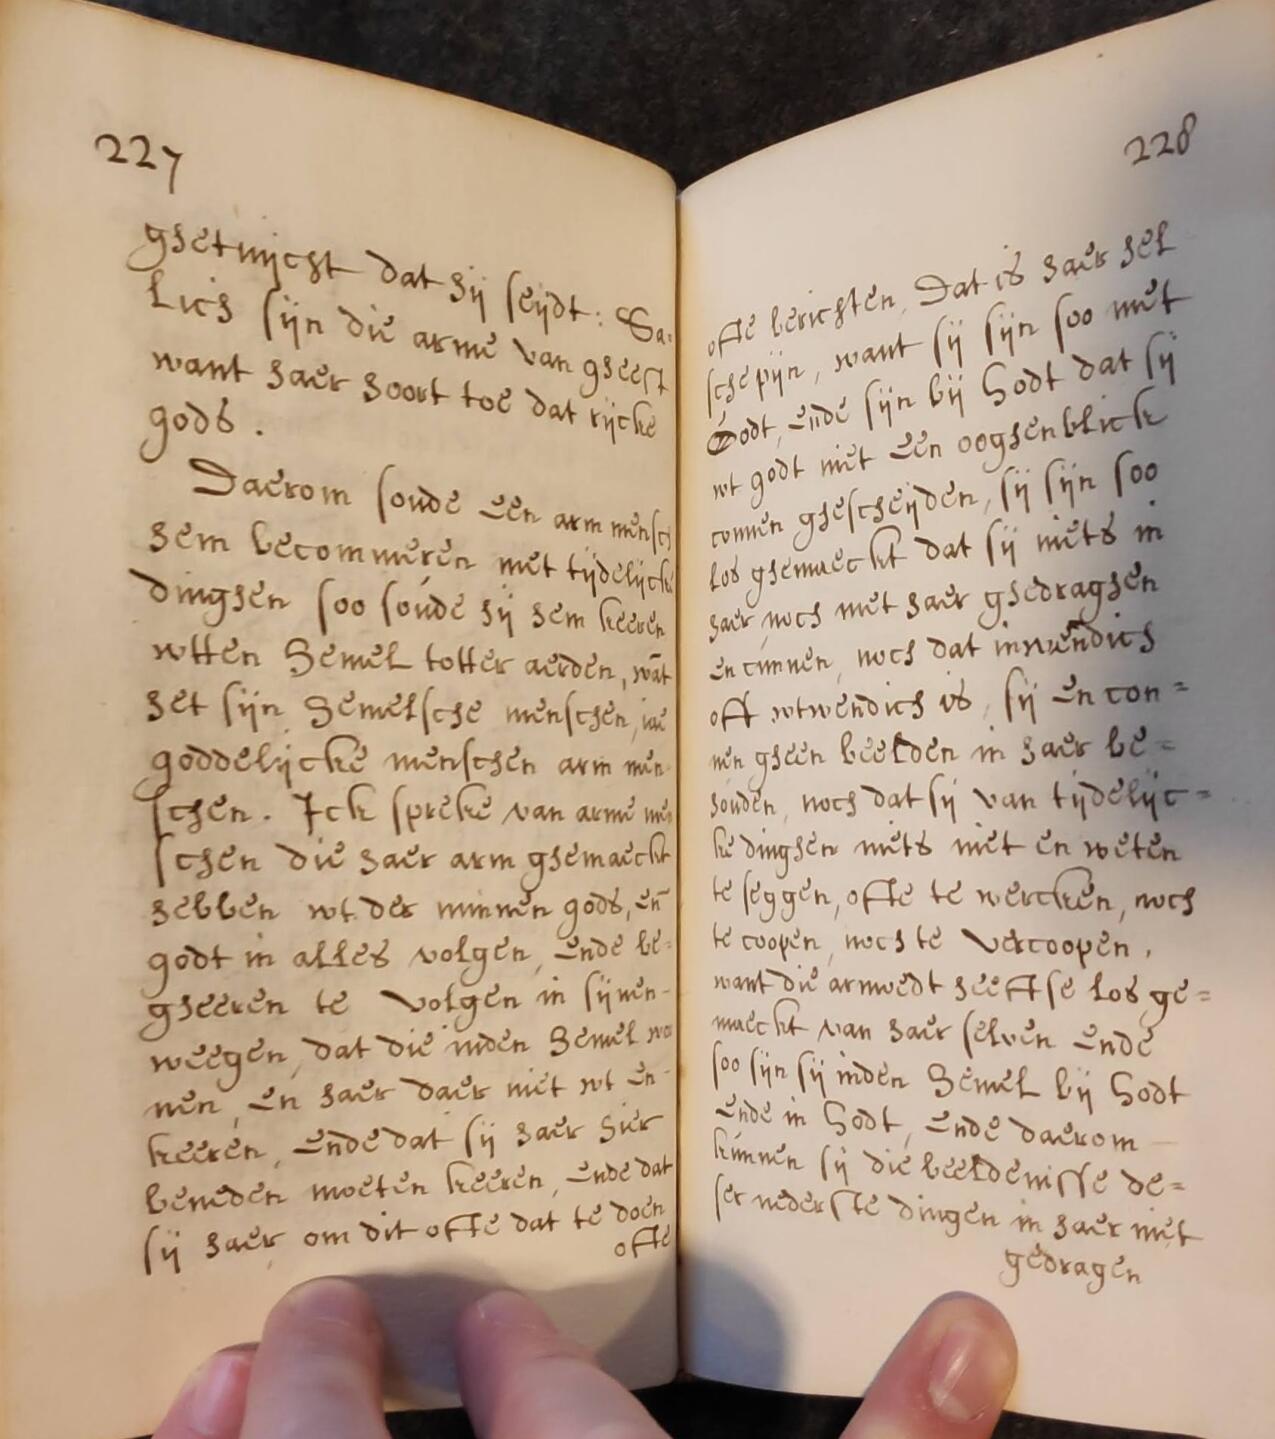 227
ghetuijcht dat hij seijdt: Sa-
lich sijn die arme van gheest
want haer hoort toe dat rijcke
gods.
Daerom soude een arm mensch
hem becommeren met tijdelijcke
dinghen soo soude hij hem keeren
wtten Hemel totter aerden, wāt
het sijn Hemelsche menschen, iae
goddelijcke menschen arm men-
schen. Ick spreke van arme men
schen die haer arm ghemaeckt
hebben wt der minnen gods, eñ
godt in alles volgen, ende be-
gheeren te volgen in sijnen-
weegen, dat die inden Hemel wo
nen, en haer daer niet wt en-
keeren, ende dat sij haer hier
beneden moeten keeren, ende dat
sij haer om dit ofte dat te doen
ofte
228
ofte berichten. Dat is haer hel
sche pijn, want sij sijn soo met
Godt, ende sijn bij Godt dat sij
wt godt niet een ooghenblick
connen ghescheijden, sij sijn soo
los ghemaeckt dat sij niets in
haer noch met haer ghedraghen
en cunnen, noch dat inwendich
oft wtwendich is, sij en con=
nen gheen beelden in haer be=
houden, noch dat sij van tijdelijc=
ke dinghen niets niet en weten
te seggen, ofte te wercken, noch
te coopen, noch te vercoopen,
want die armoedt heeftse los ge=
maeckt van haer selven ende
soo sijn sij inden Hemel bij Godt
ende in Godt, ende daerom
kunnen sij die beeldenisse de=
ser nederste dingen in haer niet
gedragen